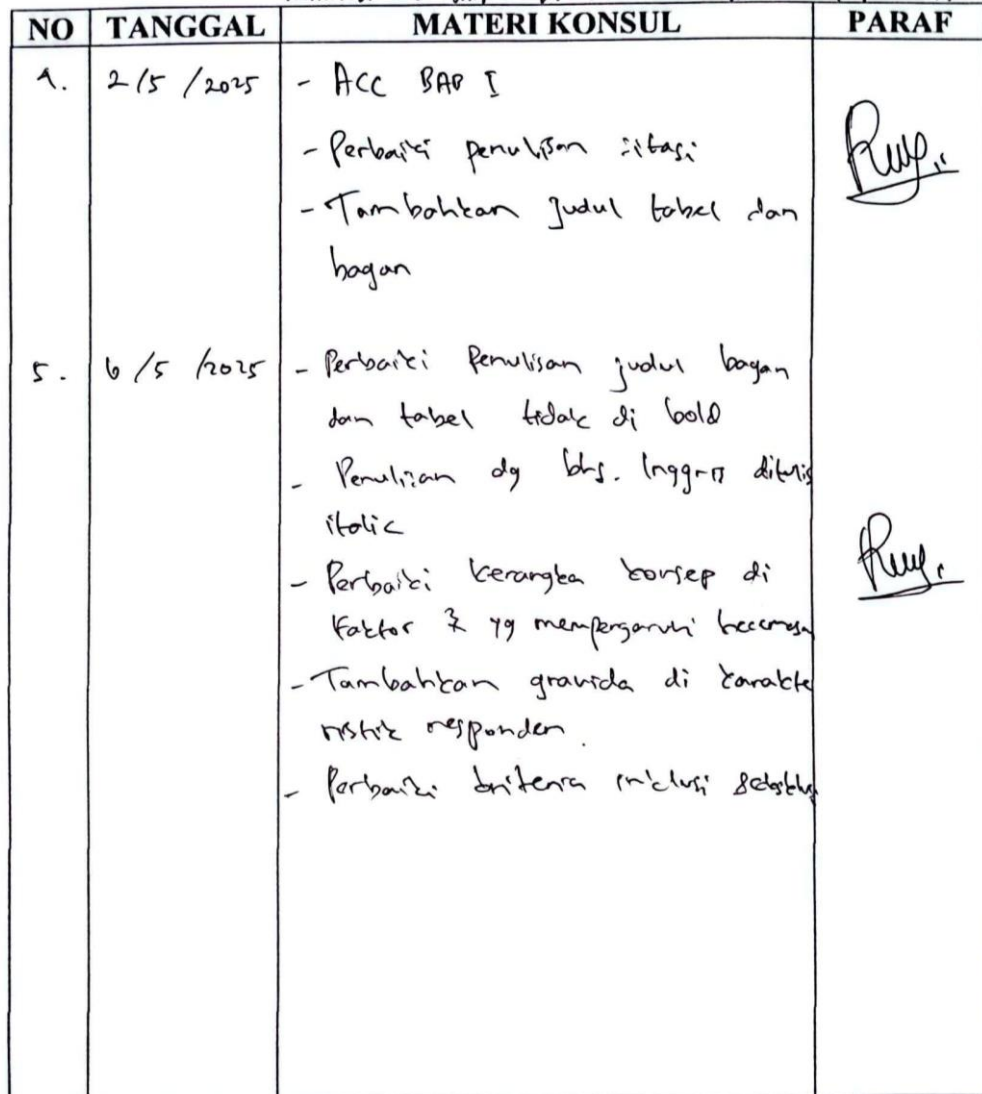 NO TANGGAL MATERI KONSUL PARAF
4. 2/5/2025 - ACC BAB I
- Perbaiki penulisan sitasi
- Tambahkan Judul tabel dan
bagan
5. 6/5/2025 - Perbaiki Penulisan judul bagan
dan tabel tidak di bold
- Penulisan dg bhs. Inggris ditulis
italic
- Perbaiki kerangka konsep di
faktor 2 yg mempengaruhi kecemasa
- Tambahkan gravida di karakte
ristik responden.
- Perbaiki kriteria inklusi